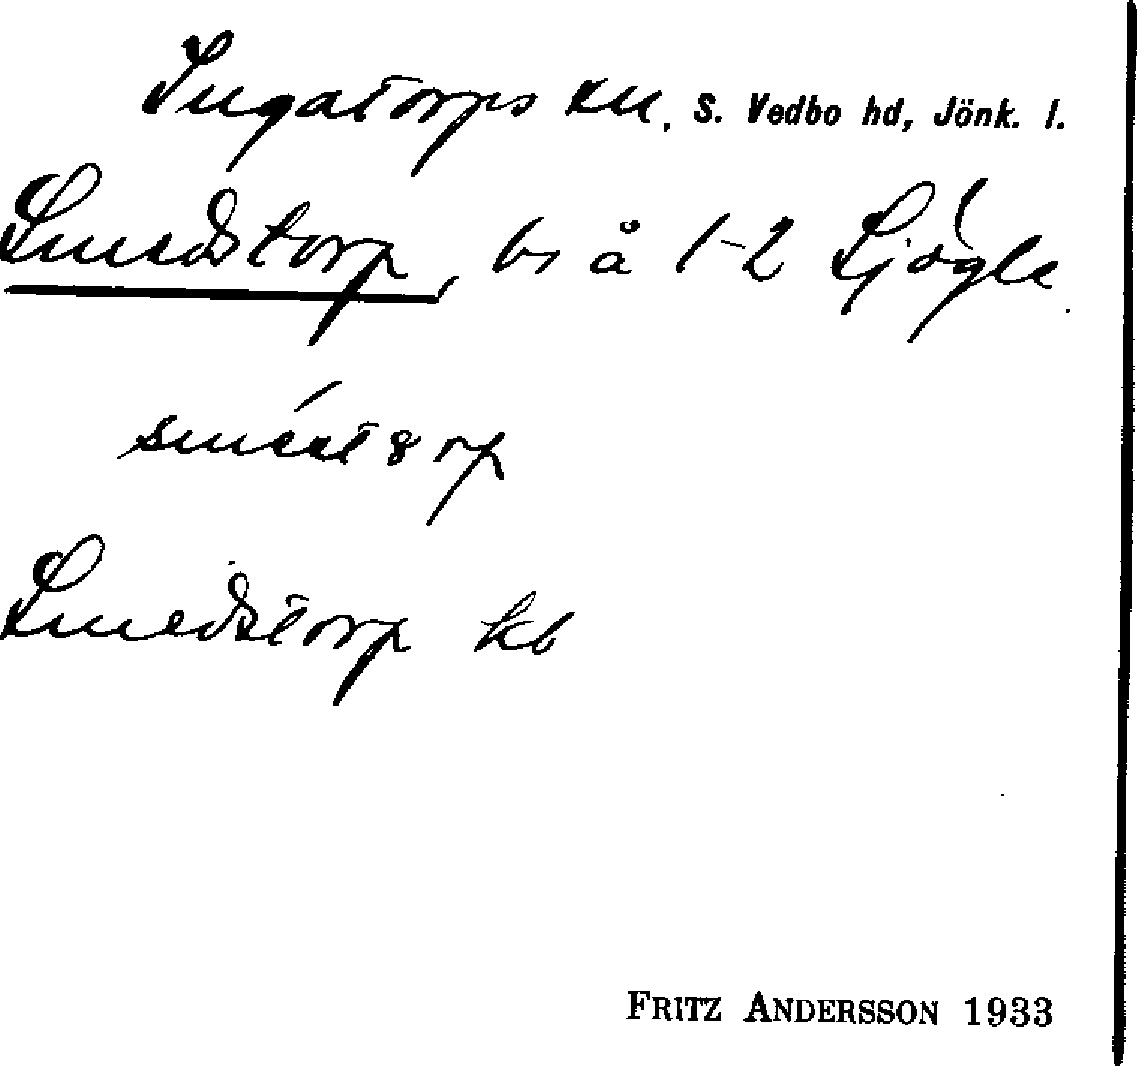 Ingatorps sn, S. Vedbo hd, Jönk. l.
Smedstorp, bs å 1-2 Sjögle
Smedstorp kb
FRITZ ANDERSSON 1933